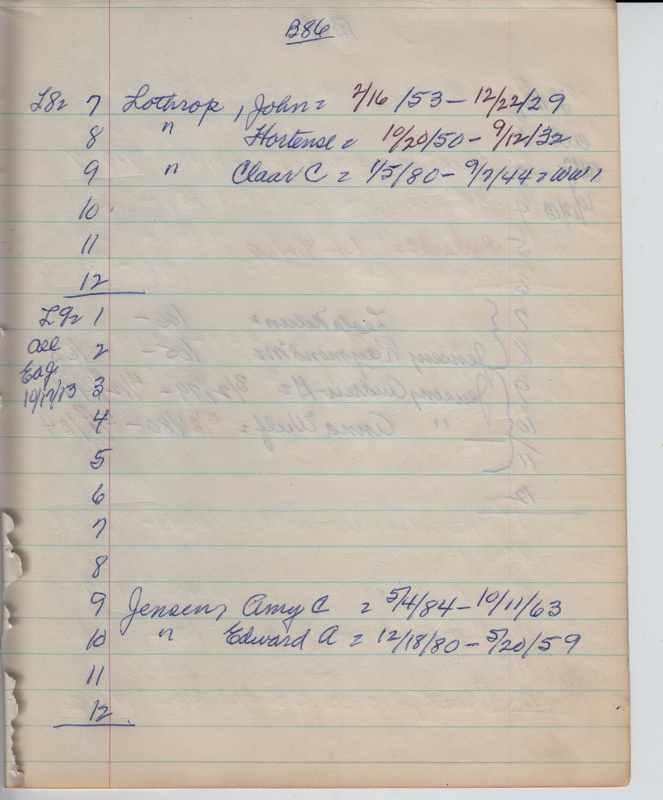 B86
L8= 7 Lothrop, John = 2/16/53 - 12/22/29
8 " Hortense = 10/20/50 - 9/12/32
9 " Claar C = 1/5/80 - 9/7/44 = WW1
10
11
12
L9= 1
2
3
10/17/13
4
5
6
7
8
9 Jensen, Amy C = 5/4/84 - 10/11/63
10 " Edward A = 12/18/80 - 5/20/59
11
12